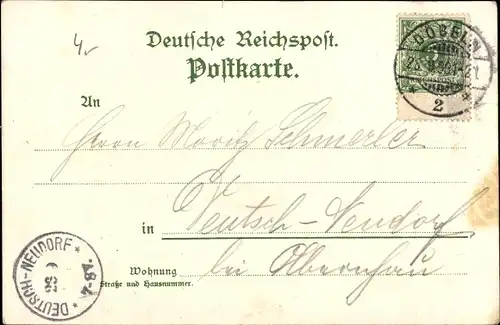 4,
Deutsche Reichspost.
Postkarte.
DÖBELN
2
An
Herrn Moritz Schmerler
in Deutsch-Neudorf
Wohnung bei Olbernhau
Straße und Hausnummer.
* DEUTSCH-NEUDORF *
7-8V.